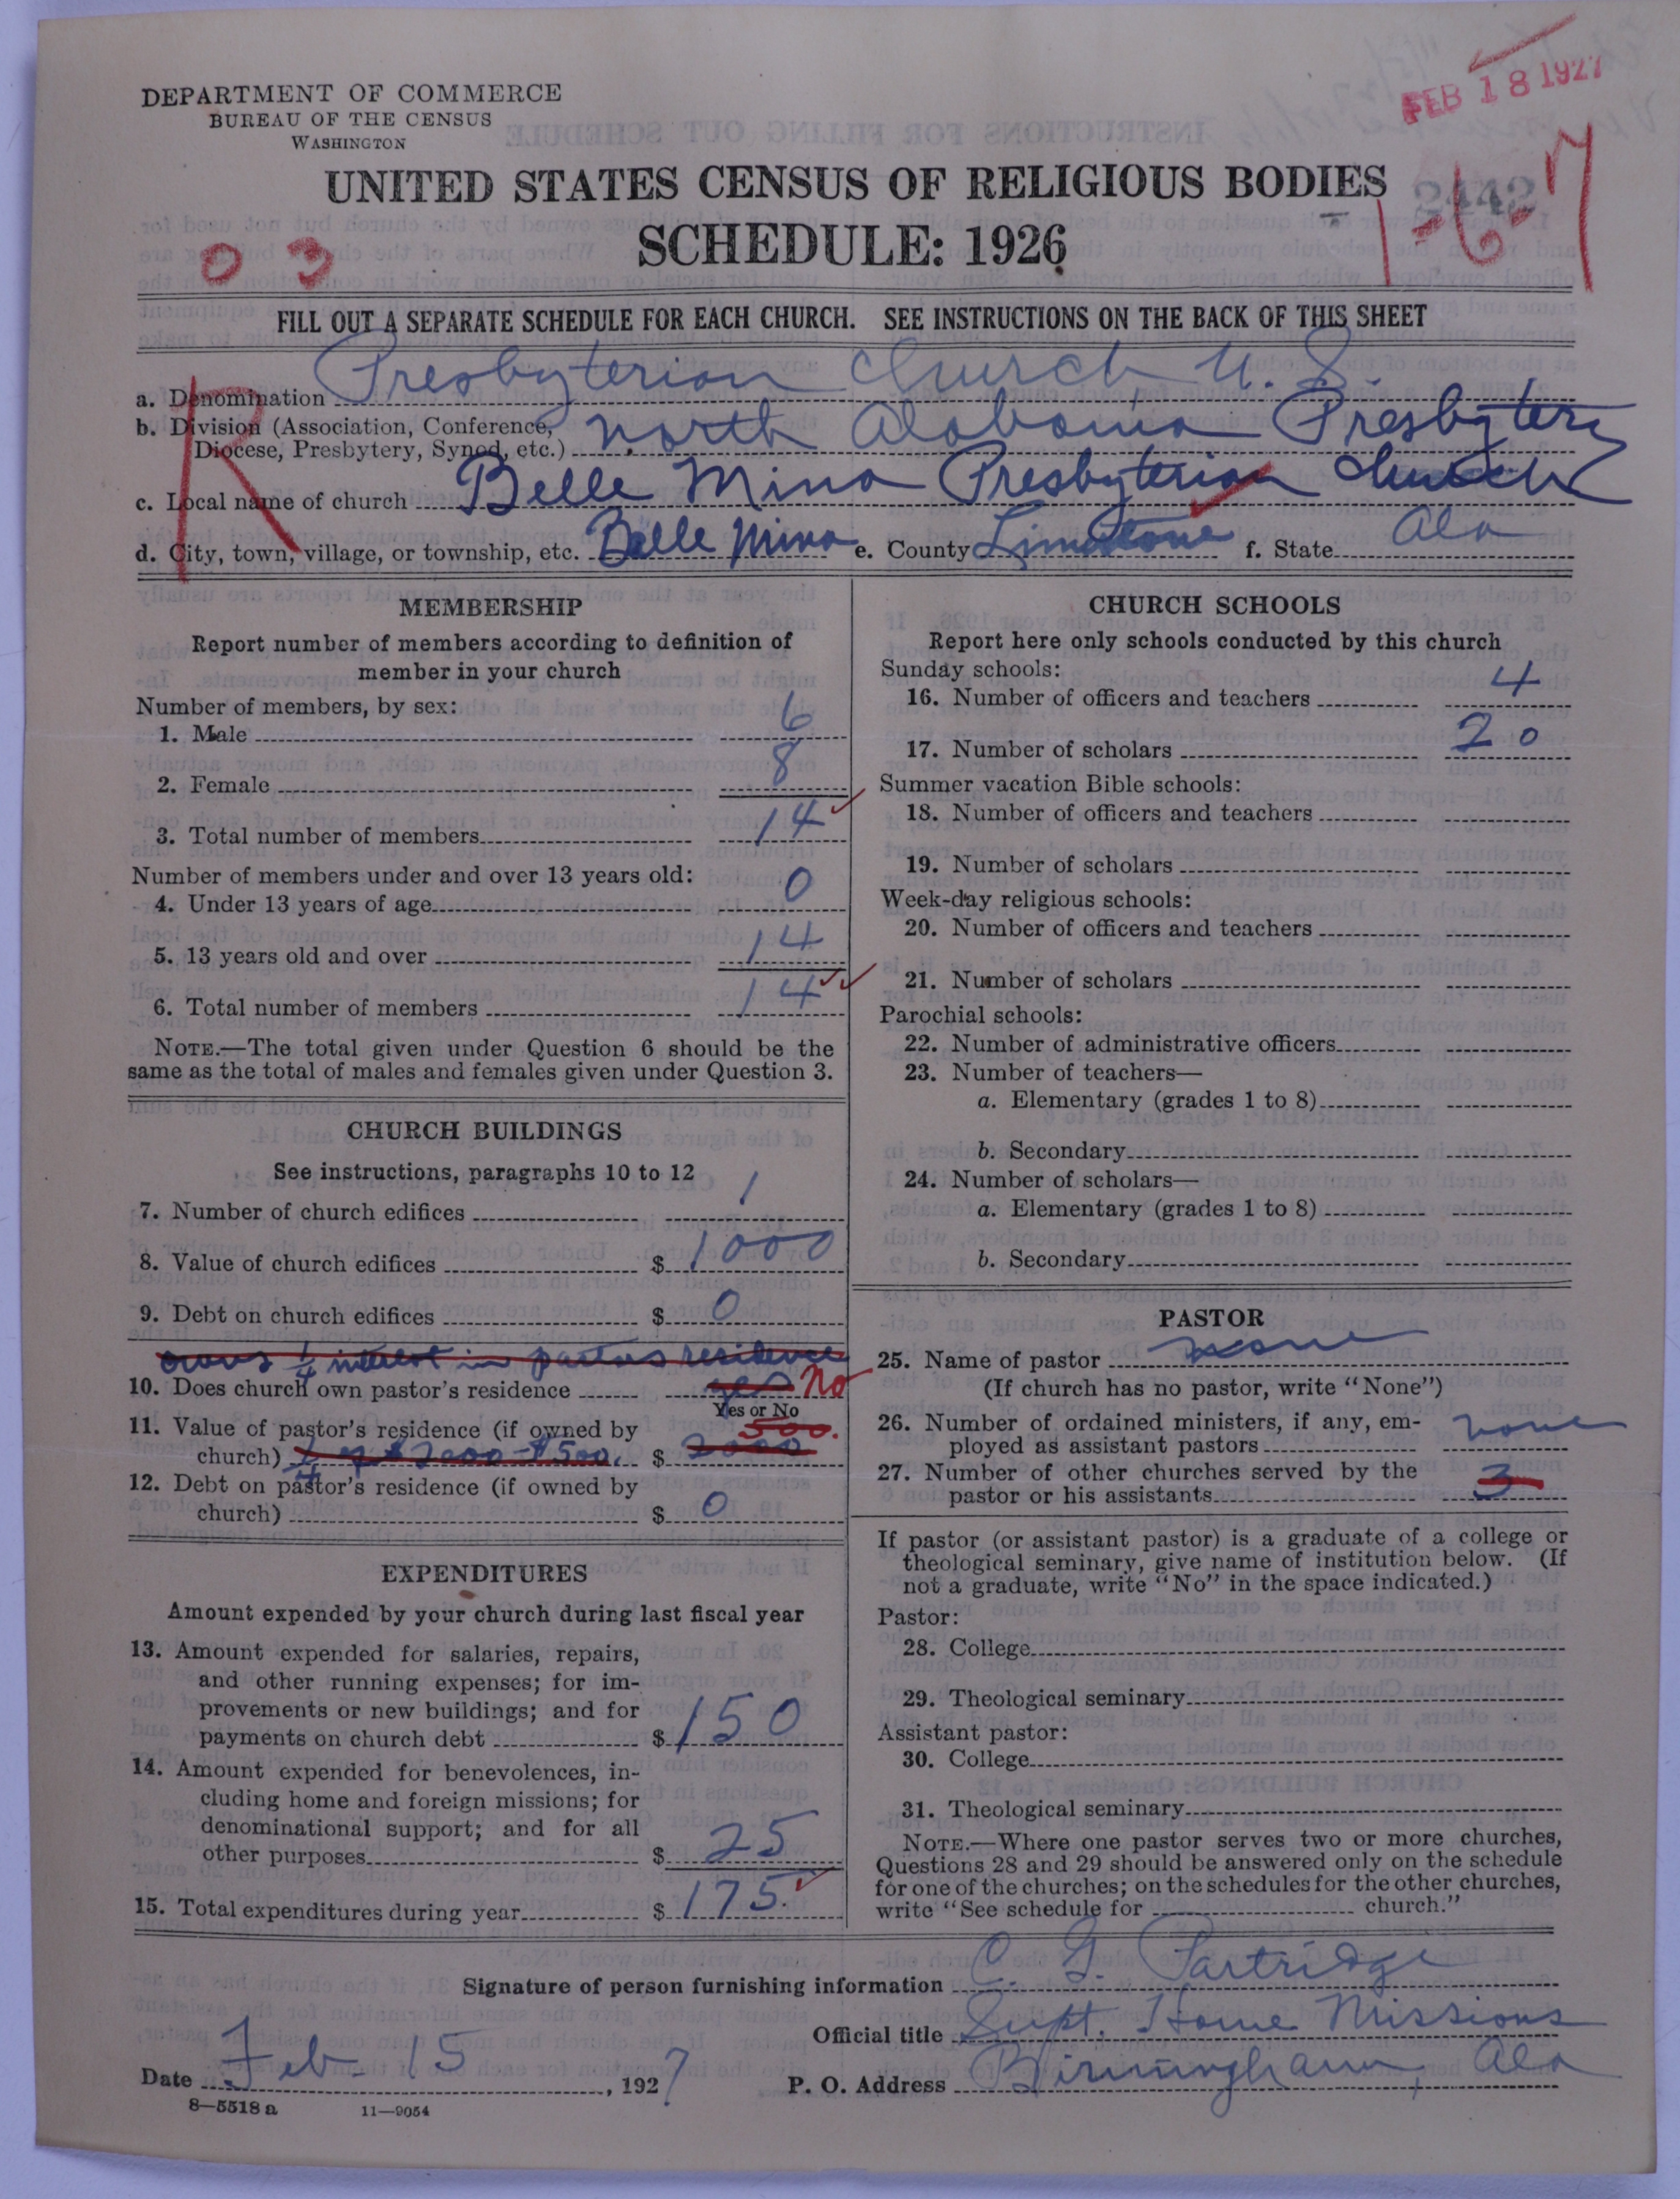 FEB 18 1927
DEPARTMENT OF COMMERCE
BUREAU OF THE CENSUS
WASHINGTON
UNITED STATES CENSUS OF RELIGIOUS BODIES
2442
1-6-7
SCHEDULE: 1926
03
FILL OUT A SEPARATE SCHEDULE FOR EACH CHURCH. SEE INSTRUCTIONS ON THE BACK OF THIS SHEET
R
a. Denomination Presbyterian Church U. S.
b. Division (Association, Conference,
Diocese, Presbytery, Synod, etc.) North Alabama Presbytery
c. Local name of church Belle Mina Presbyterian Church
d. City, town, village, or township, etc. Belle Mina e. County Limestone f. State Ala
MEMBERSHIP
Report number of members according to definition of
member in your church
Number of members, by sex:
1. Male 6
2. Female 8
3. Total number of members 14
Number of members under and over 13 years old:
4. Under 13 years of age 0
5. 13 years old and over 14
6. Total number of members 14
NOTE.—The total given under Question 6 should be the
same as the total of males and females given under Question 3.
CHURCH BUILDINGS
See instructions, paragraphs 10 to 12
7. Number of church edifices 1
8. Value of church edifices $ 1000
9. Debt on church edifices $ 0
owns 1/4 interest in pastors residence
10. Does church own pastor's residence yes No
Yes or No
11. Value of pastor's residence (if owned by
church) 1/4 of $2000 - $500. $ 2000 500.
12. Debt on pastor's residence (if owned by
church) $ 0
EXPENDITURES
Amount expended by your church during last fiscal year
13. Amount expended for salaries, repairs,
and other running expenses; for im-
provements or new buildings; and for
payments on church debt $ 150
14. Amount expended for benevolences, in-
cluding home and foreign missions; for
denominational support; and for all
other purposes $ 25
15. Total expenditures during year $ 175.
CHURCH SCHOOLS
Report here only schools conducted by this church
Sunday schools:
16. Number of officers and teachers 4
17. Number of scholars 20
Summer vacation Bible schools:
18. Number of officers and teachers
19. Number of scholars
Week-day religious schools:
20. Number of officers and teachers
21. Number of scholars
Parochial schools:
22. Number of administrative officers
23. Number of teachers—
a. Elementary (grades 1 to 8)
b. Secondary
24. Number of scholars—
a. Elementary (grades 1 to 8)
b. Secondary
PASTOR
25. Name of pastor none
(If church has no pastor, write "None")
26. Number of ordained ministers, if any, em-
ployed as assistant pastors none
27. Number of other churches served by the
pastor or his assistants 3
If pastor (or assistant pastor) is a graduate of a college or
theological seminary, give name of institution below. (If
not a graduate, write "No" in the space indicated.)
Pastor:
28. College
29. Theological seminary
Assistant pastor:
30. College
31. Theological seminary
NOTE.—Where one pastor serves two or more churches,
Questions 28 and 29 should be answered only on the schedule
for one of the churches; on the schedules for the other churches,
write "See schedule for church."
Signature of person furnishing information C. G. Partridge
Official title Supt. Home Missions
Date Feb 15, 1927 P. O. Address Birmingham, Ala
8—5518 a 11—9054